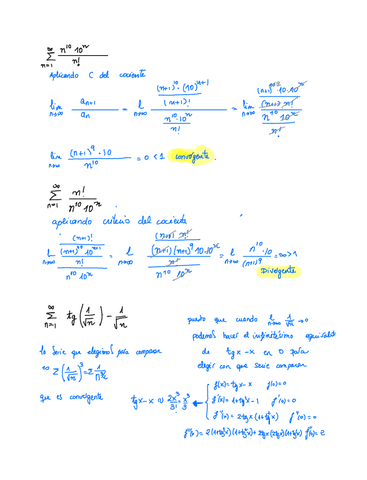 ∞
∑ n^10 10^n / n!
n=1
Aplicando C del cociente
lim n→∞ a_n+1 / a_n = l n→∞ ((n+1)^10 · (10)^n+1 / (n+1)!) / (n^10 · 10^n / n!) = lim n→∞ ((n+1)^10 9 10 · 10^n / (n+1) n!) / (n^10 10^n / n!)
lim n→∞ (n+1)^9 · 10 / n^10 = 0 < 1 convergente.
∞
∑ n! / n^10 10^n
n=1
aplicando criterio del cociente
l n→∞ ((n+1)! / (n+1)^10 10^n+1) / (n! / n^10 10^n) = l n→∞ ((n+1) n! / (n+1)(n+1)^9 10·10^n) / (n! / n^10 10^n) = l n→∞ n^10 / 10 (n+1)^9 = ∞ > 1
Divergente
∞
∑ tg(1/√n) - 1/√n
n=1
puesto que cuando l n→∞ 1/√n → 0
podemos hacer el infinitésimo equivalente
de tg x - x en 0 para
elegir con que serie comparar
la serie que elegimos para comparar
es ∑(1/√n)^3 = ∑ 1/n√n
que es convergente
tg x - x ≈ 2x^3/3! = x^3/3 ←
f(x) = tg x - x f(0) = 0
f'(x) = 1 + tg²x - 1 f'(0) = 0
f''(x) = 2tg x (1+tg²x) f''(0) = 0
f'''(x) = 2(1+tg²x)(1+tg²x) + 2tg x (2tg x)(1+tg²x) f'''(0) = 2